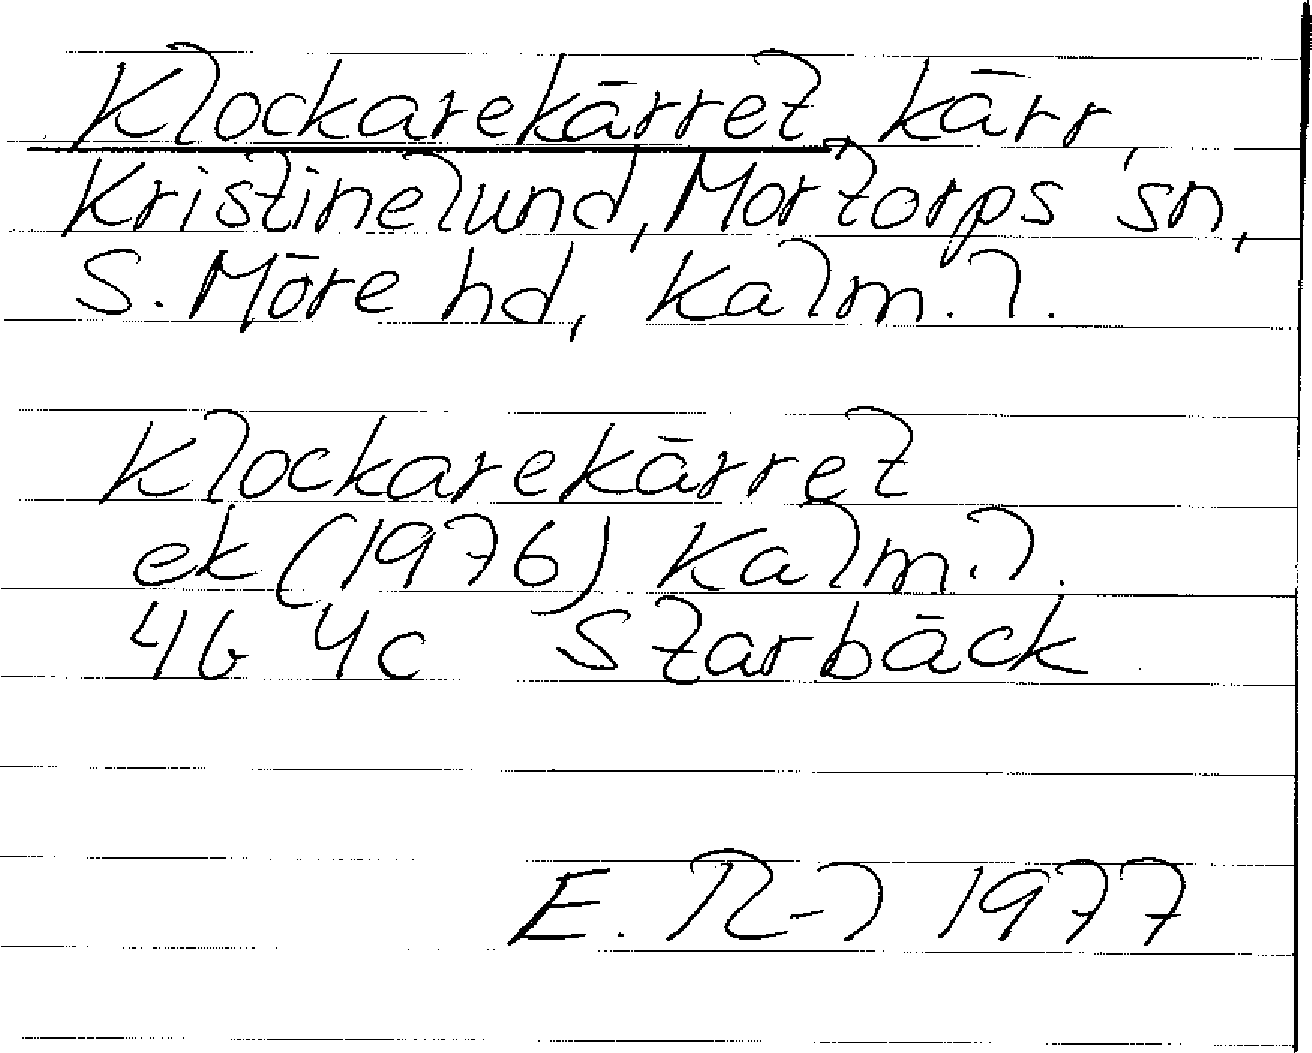 Klockarekärret, kärr,
Kristinelund, Mortorps sn,
S. Möre hd, Kalm. l.
Klockarekärret
ek (1976) Kalm. l.
4G 4c Starbäck
E. R-l 1977